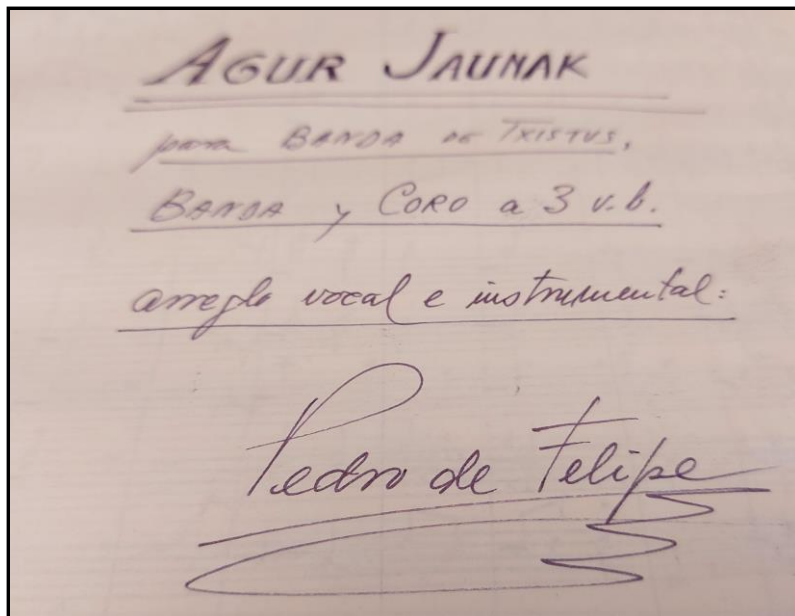 AGUR JAUNAK
para BANDA DE TXISTUS,
BANDA y CORO a 3 v.b.
arreglo vocal e instrumental:
Pedro de Felipe